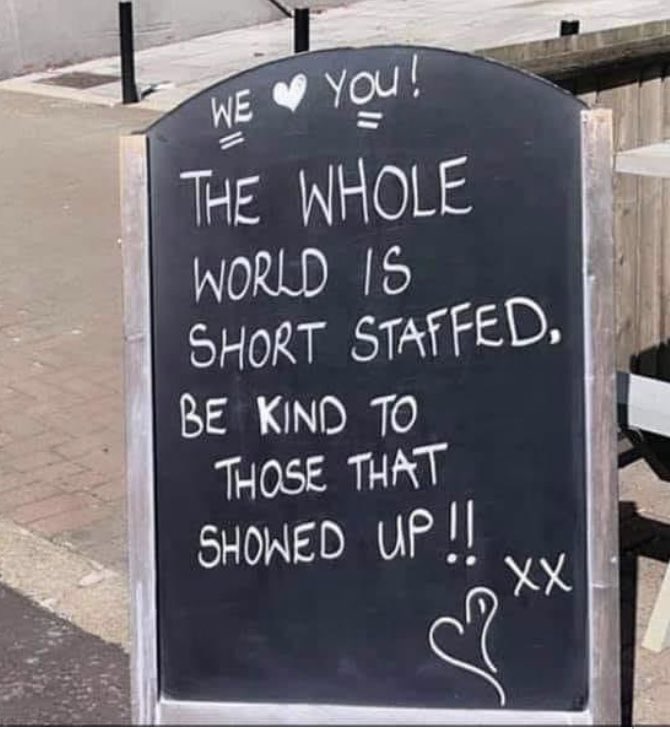 WE ♥ YOU!
THE WHOLE
WORLD IS
SHORT STAFFED,
BE KIND TO
THOSE THAT
SHOWED UP!!
XX